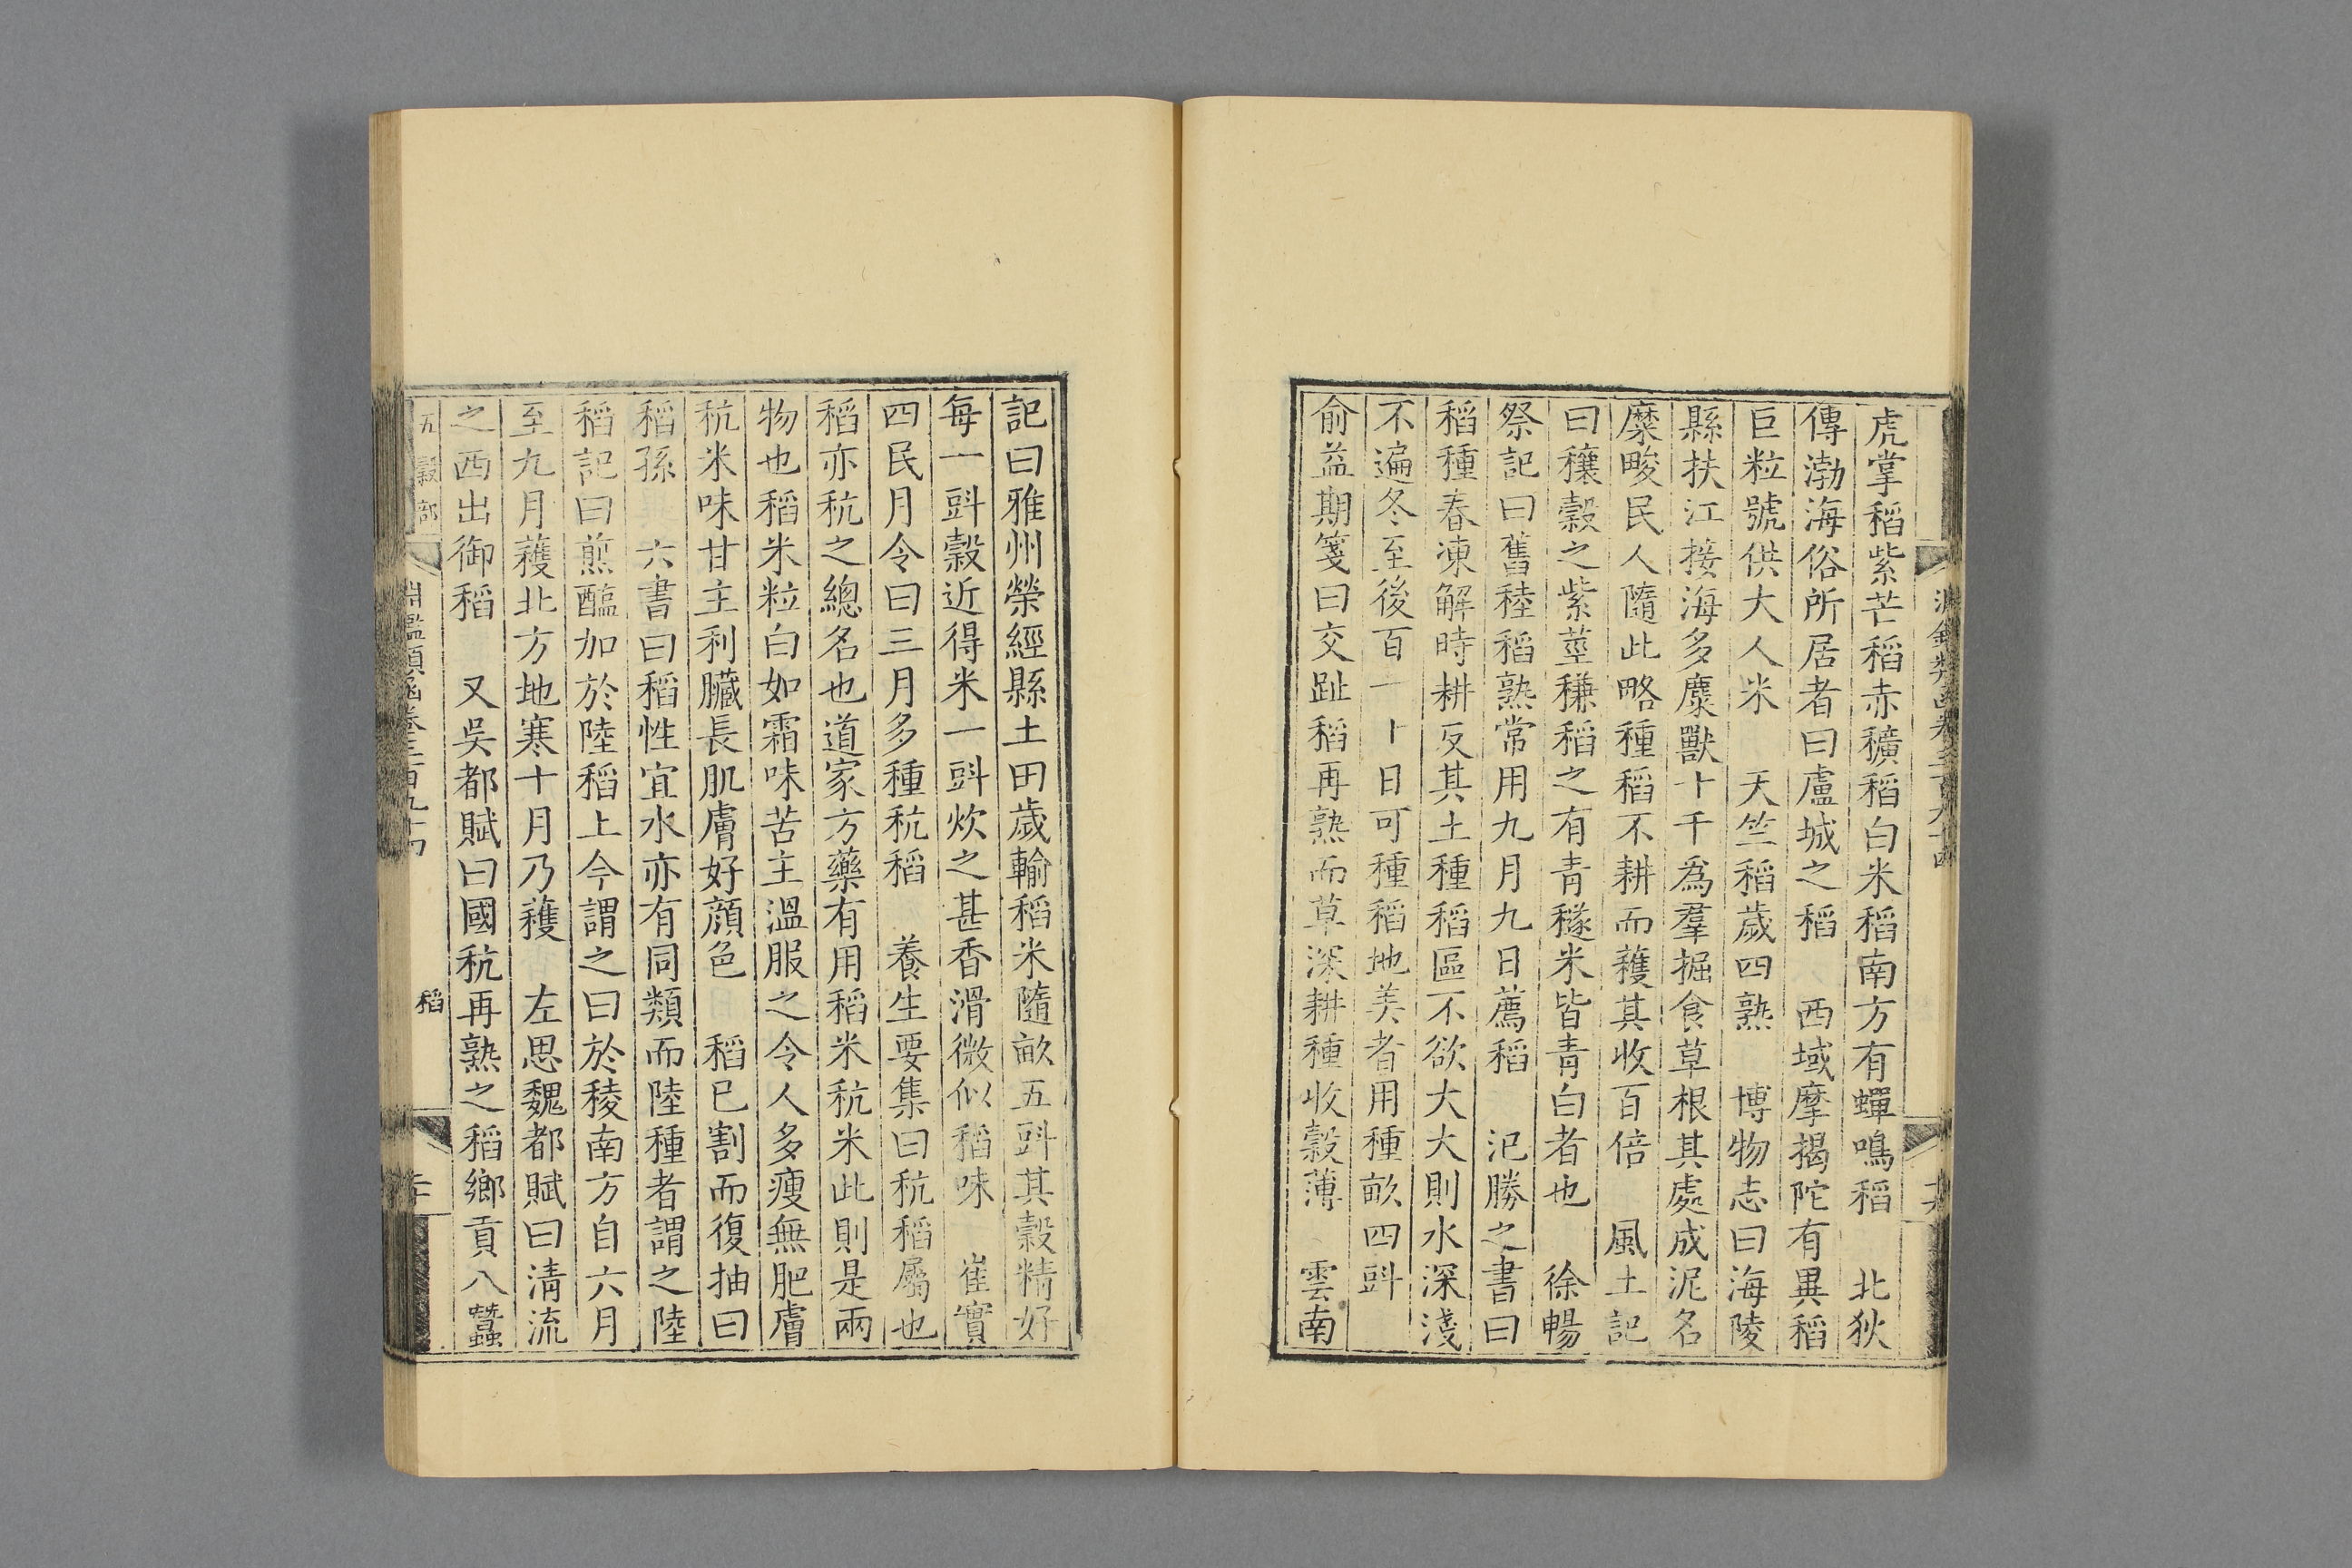 虎掌稻紫芒稻赤穬稻白米稻南方有蟬鳴稻　北狄
傳渤海俗所居者曰盧城之稻　西域摩揭陀有異稻
巨粒號供大人米　天竺稻歲四熟　博物志曰海陵
縣扶江接海多麋獸十千爲羣掘食草根其處成泥名
麋畯民人隨此略種稻不耕而穫其收百倍　風土記
曰穰穀之紫莖稴稻之有青穟米皆青白者也　徐暢
祭記曰舊稑稻熟常用九月九日薦稻　氾勝之書曰
稻種春凍解時耕反其土種稻區不欲大大則水深淺
不遍冬至後百一十日可種稻地美者用種畝四㪷
俞益期箋曰交趾稻再熟而草深耕種收穀薄　雲南
記曰雅州榮經縣土田歲輸稻米隨畝五㪷其穀精好
每一㪷穀近得米一㪷炊之甚香滑微似稻味　崔實
四民月令曰三月多種秔稻　養生要集曰秔稻屬也
稻亦秔之總名也道家方藥有用稻米秔米此則是兩
物也稻米粒白如霜味苦主溫服之令人多瘦無肥膚
秔米味甘主利臟長肌膚好顔色　稻已割而復抽曰
稻孫　六書曰稻性宜水亦有同類而陸種者謂之陸
稻記曰煎醢加於陸稻上今謂之曰於稜南方自六月
至九月穫北方地寒十月乃穫　左思魏都賦曰淸流
之西出御稻　又吳都賦曰國秔再熟之稻鄉貢八蠶
五穀部
淵鑑類函卷三百九十四
稻